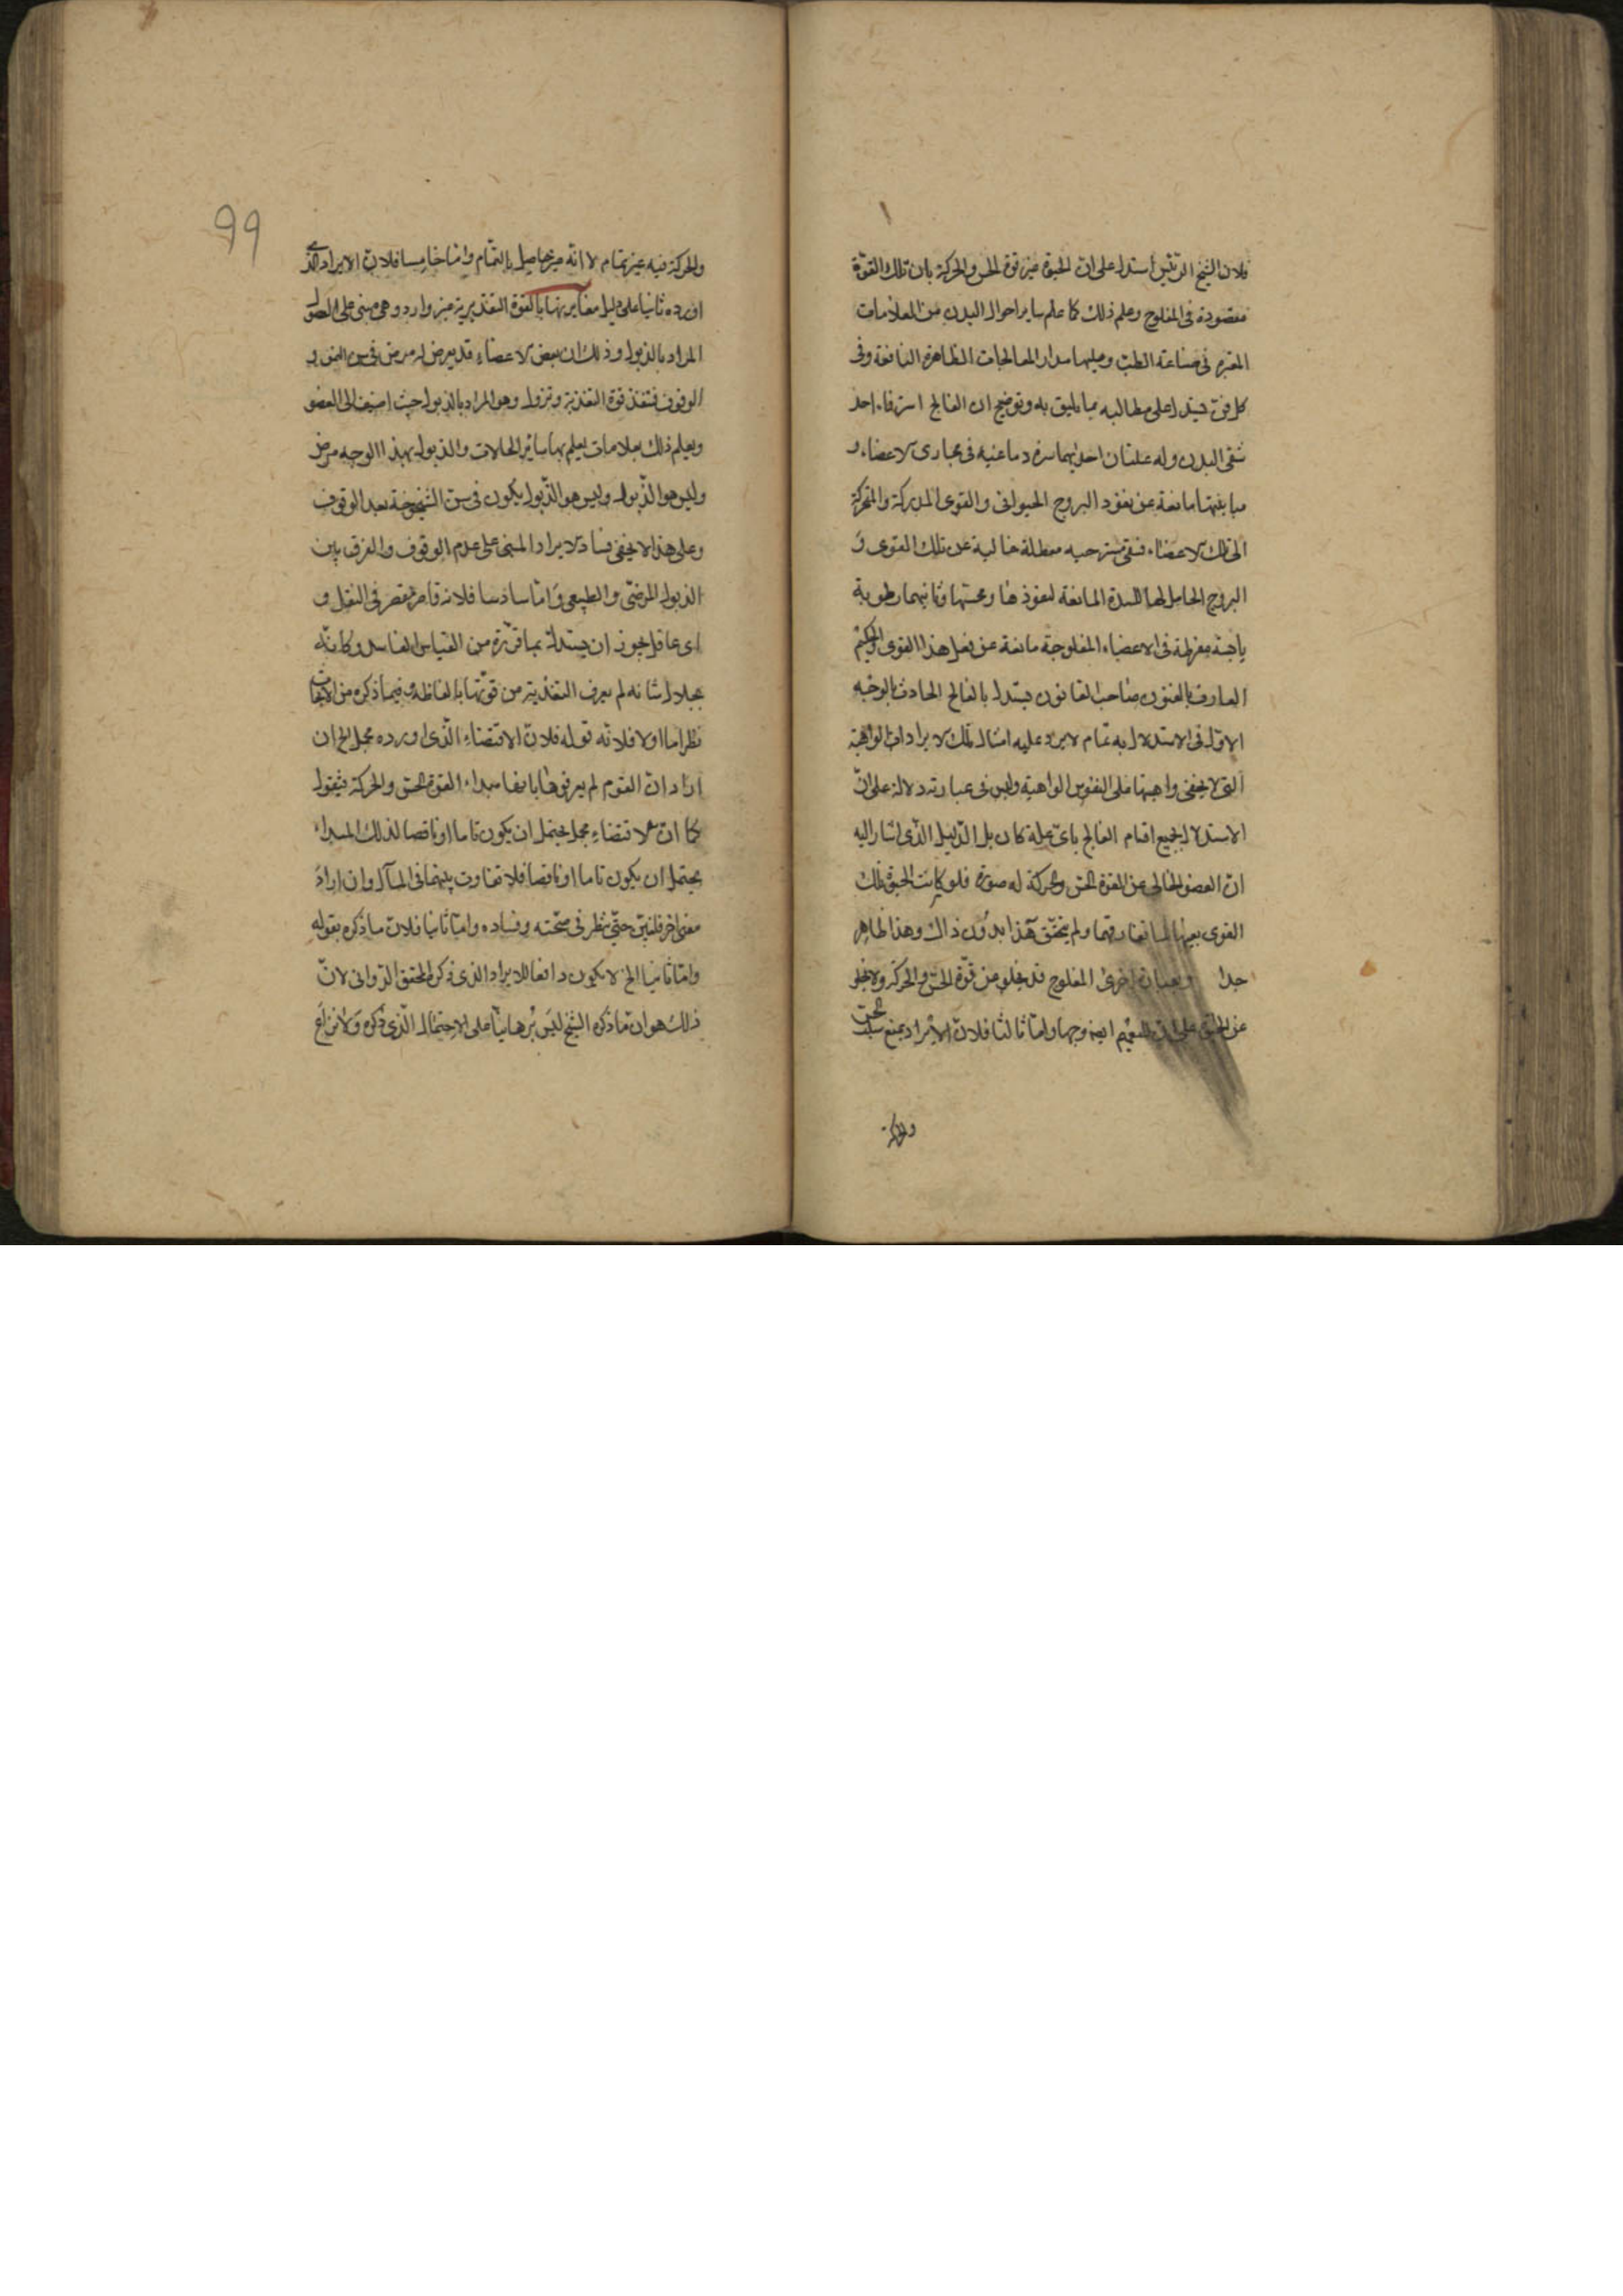 فلان الشيخ الرئيس استدل على ان الحيوة غير قوة الحس والحركة بان تلك القوّة
مفقودة فى المفلوج وعلم ذلك كما علم ساير احوال البدن من العلامات
المقررة فى صناعة الطب وعليها مدار المعالجات الظاهرة النافعة وفى
كل فن يستدل على مطالبه بما يليق به وتوضيح ان الفالج استرخاء احد
شقى البدن وله علتان احديهما سدة دماغية فى مجارى الاعضاء و
مباينتها مانعة عن نفوذ الروح الحيوانى والقوى المدركة والمحركة
الى تلك الاعضاء فتبقى مسترخيه معطلة خالية عن تلك القوى و
الروح الحامل لها للسدة المانعة لنفوذها وثانيهما رطوبة
مفرطة فى الاعضاء المفلوجة مانعة عن فعل هذا القوى والحكيم
العارف بالفنون صاحب القانون يستدل بالفالج الحادث بالوجه
الاول فى الاستدلال به تمام لا يرد عليه امثال تلك الايرادات الواهية
التى لا يخفى واهيتها على النفوس الواهية وليس فى عبارته دلالة على انّ
الاستدلال بجميع اقسام الفالج باى علة كان بل الدليل الذى اشار اليه
ان العضو الخالى عن القوة الحس والحركة له صورة فلو كانت الحيوة تلك
القوى بعينها لما تفارقهما ولم يتحقق هذا بدون ذاك وهذا ظاهر
جدا وبعبارة اخرى المفلوج قد يخلو من قوّة الحس والحركة ولا يخلو
عن الحيوة على ان للتعميم ايضا وجها واما ثالثا فلان الايراد بمنع سلب الحس
والحركة
99
والحركة فيه غير تمام لا انه غير حاصل بالتمام واما خامسا فلان الايراد الذى
اورده ثانيا على دليل مغايرتها بالقوة التغذيرية غير وارد وهى مبنى على
المراد بالذبول وذلك ان بعض الاعضاء قد يعرض له مرض فى سن النمو و
الوقوف فتفقد قوة التغذية وتزول وهو المراد بالذبول حيث اضيف الى العضو
ويعلم ذلك بعلامات يعلم بها ساير الحالات والذبول بهذا الوجه مرض
وليس هو الذبول وليس هو الذبول يكون فى سن الشيخوخة بعد الوقوف
وعلى هذا لا يخفى فساد الايراد المبنى على عدم الوقوف والفرق بين
الذبول المرضى والطبيعى واما سادسا فلانه قاصر مقصر فى النقل و
اى عاقل يجوز ان يستدل بما قرره من القياس الفاسد وكانه
بجلال شانه لم يعرف التغذية من قوتها بالفاظه وفيما ذكره من الابحاث
نظر اما اولا فلانه قوله فلان الاقتضاء الذى اورده مجمل الخ ان
اراد ان القوم لم يعرفوها بانها مبداء القوة الحس والحركة فيقول
كما ان الاقتضاء مجمل يحتمل ان يكون تاما او ناقصا لذلك المبداء
يحتمل ان يكون تاما او ناقصا فلا تفاوت بينهما فى المآل وان اراد
معنى اخر فليبين حتى ننظر فى صحته وفساده واما ثانيا فلان ما ذكره بقوله
واما ثانيا الخ لا يكون دافعا للايراد الذى ذكره المحقق الدوانى لانّ
ذلك هو ان ما ذكره الشيخ ليس برهانيا على الاحتمال الذى ذكره ولا نزاع